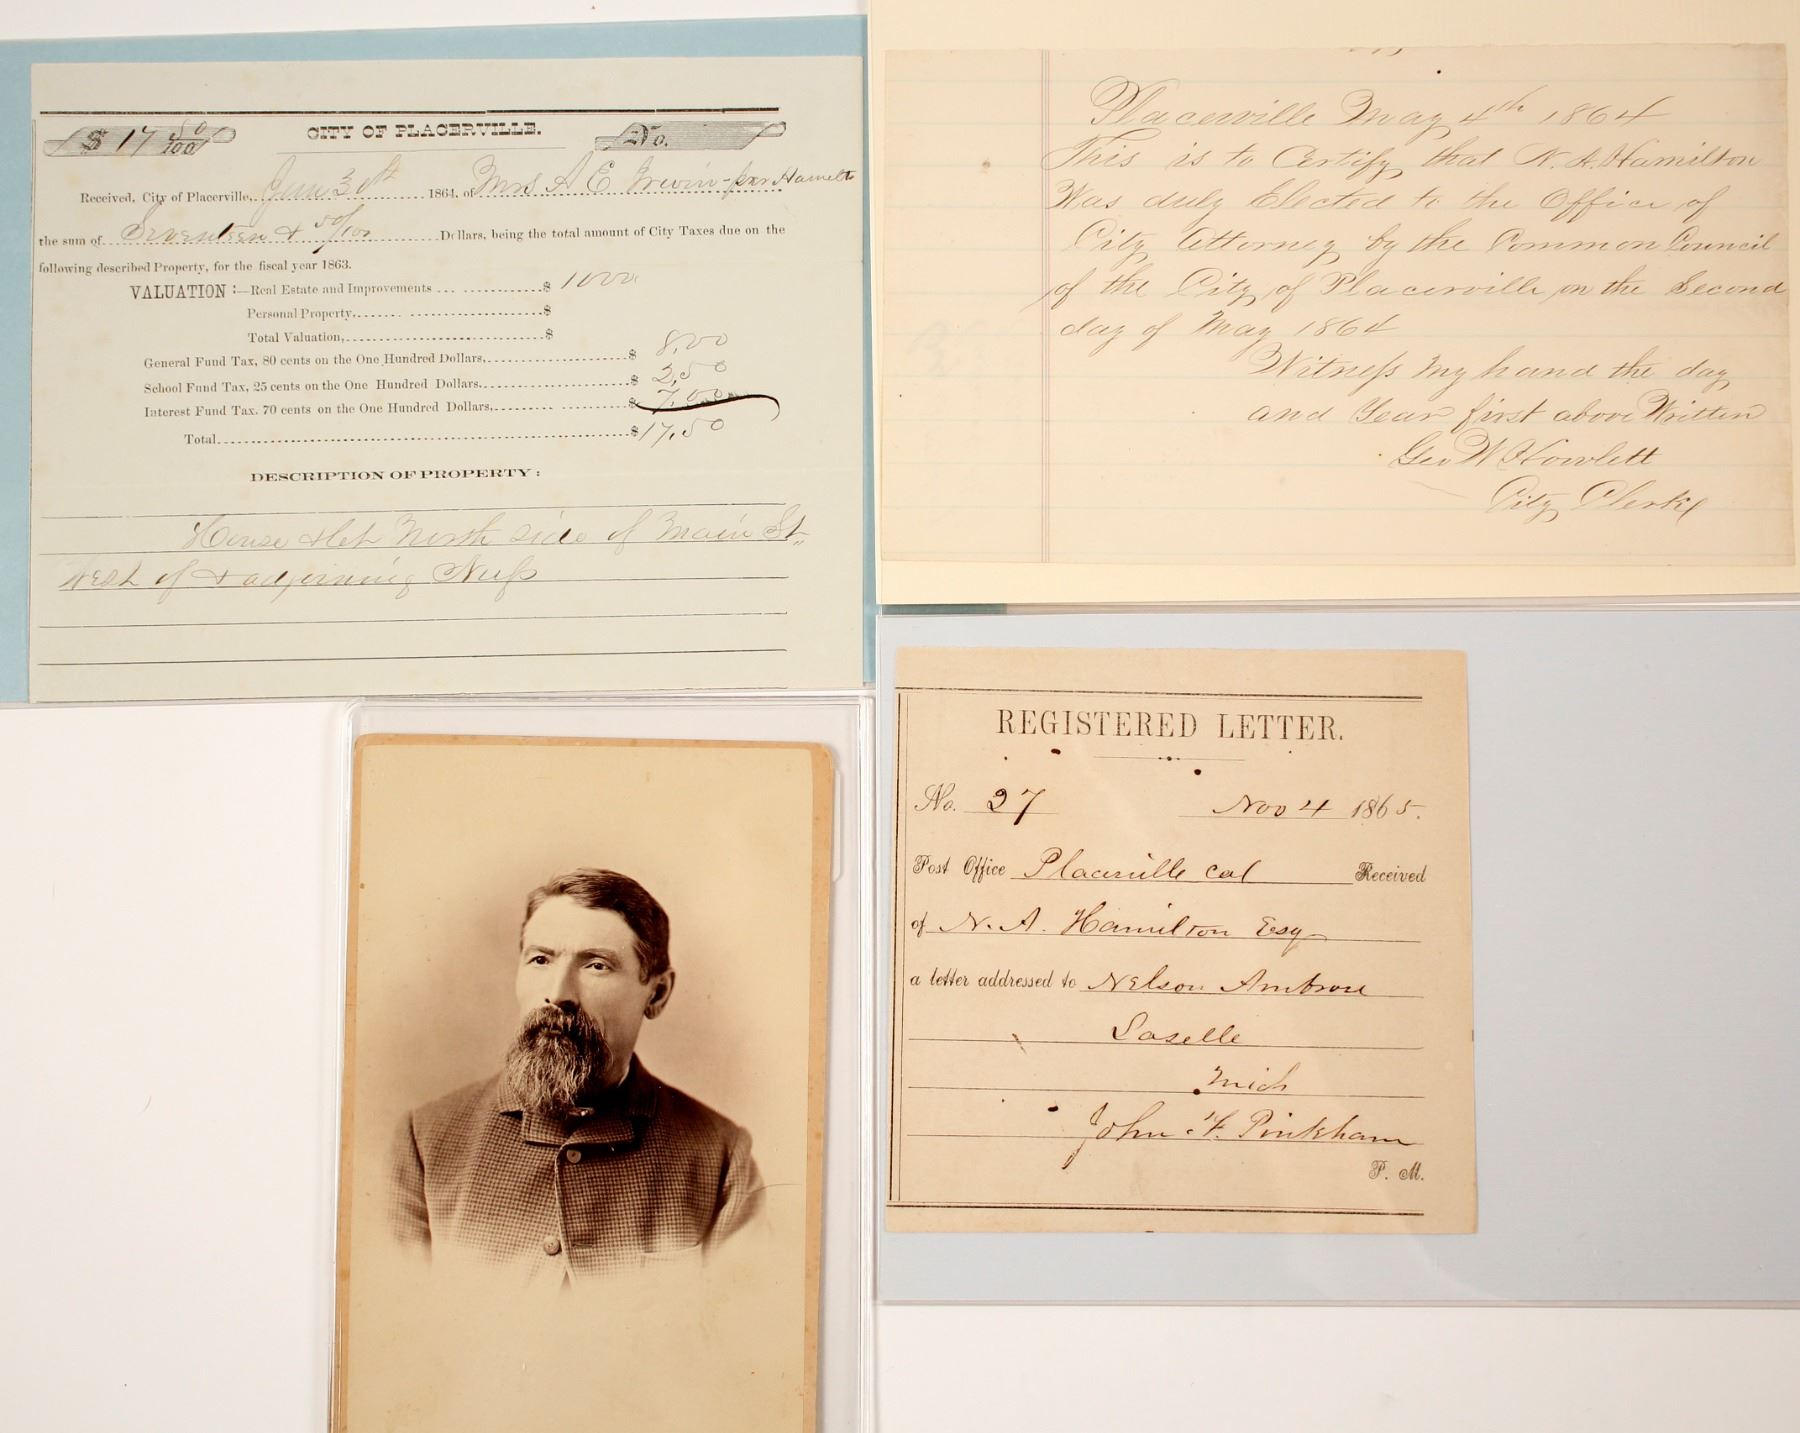 $ 17 50/100 CITY OF PLACERVILLE. No.
Received, City of Placerville, 30th 1864, of Mrs A E Irwin - per Hamilto
the sum of Seventeen & 50/100 Dollars, being the total amount of City Taxes due on the
following described Property, for the fiscal year 1863.
VALUATION :—Real Estate and Improvements $ 1000
Personal Property, $
Total Valuation, $
General Fund Tax, 80 cents on the One Hundred Dollars, $ 8,00
School Fund Tax, 25 cents on the One Hundred Dollars. $ 2,50
Interest Fund Tax. 70 cents on the One Hundred Dollars, $ 7,00
Total $ 17,50
DESCRIPTION OF PROPERTY :
House & Lot North side of Main St.
West of & adjoining
Placerville May 4th 1864
This is to Certify that N. A. Hamilton
Was duly Elected to the Office of
City Attorney by the Common Council
of the City of Placerville on the Second
day of May 1864
Witness my hand the day
and Year first above Written
Geo W Howlett
City Clerk
REGISTERED LETTER.
No. 27 Nov 4 1865.
Post Office Placerville Cal Received
of N. A. Hamilton Esq
a letter addressed to Nelson Ambrose
Laselle
Mich
John F. Pinkham
P. M.